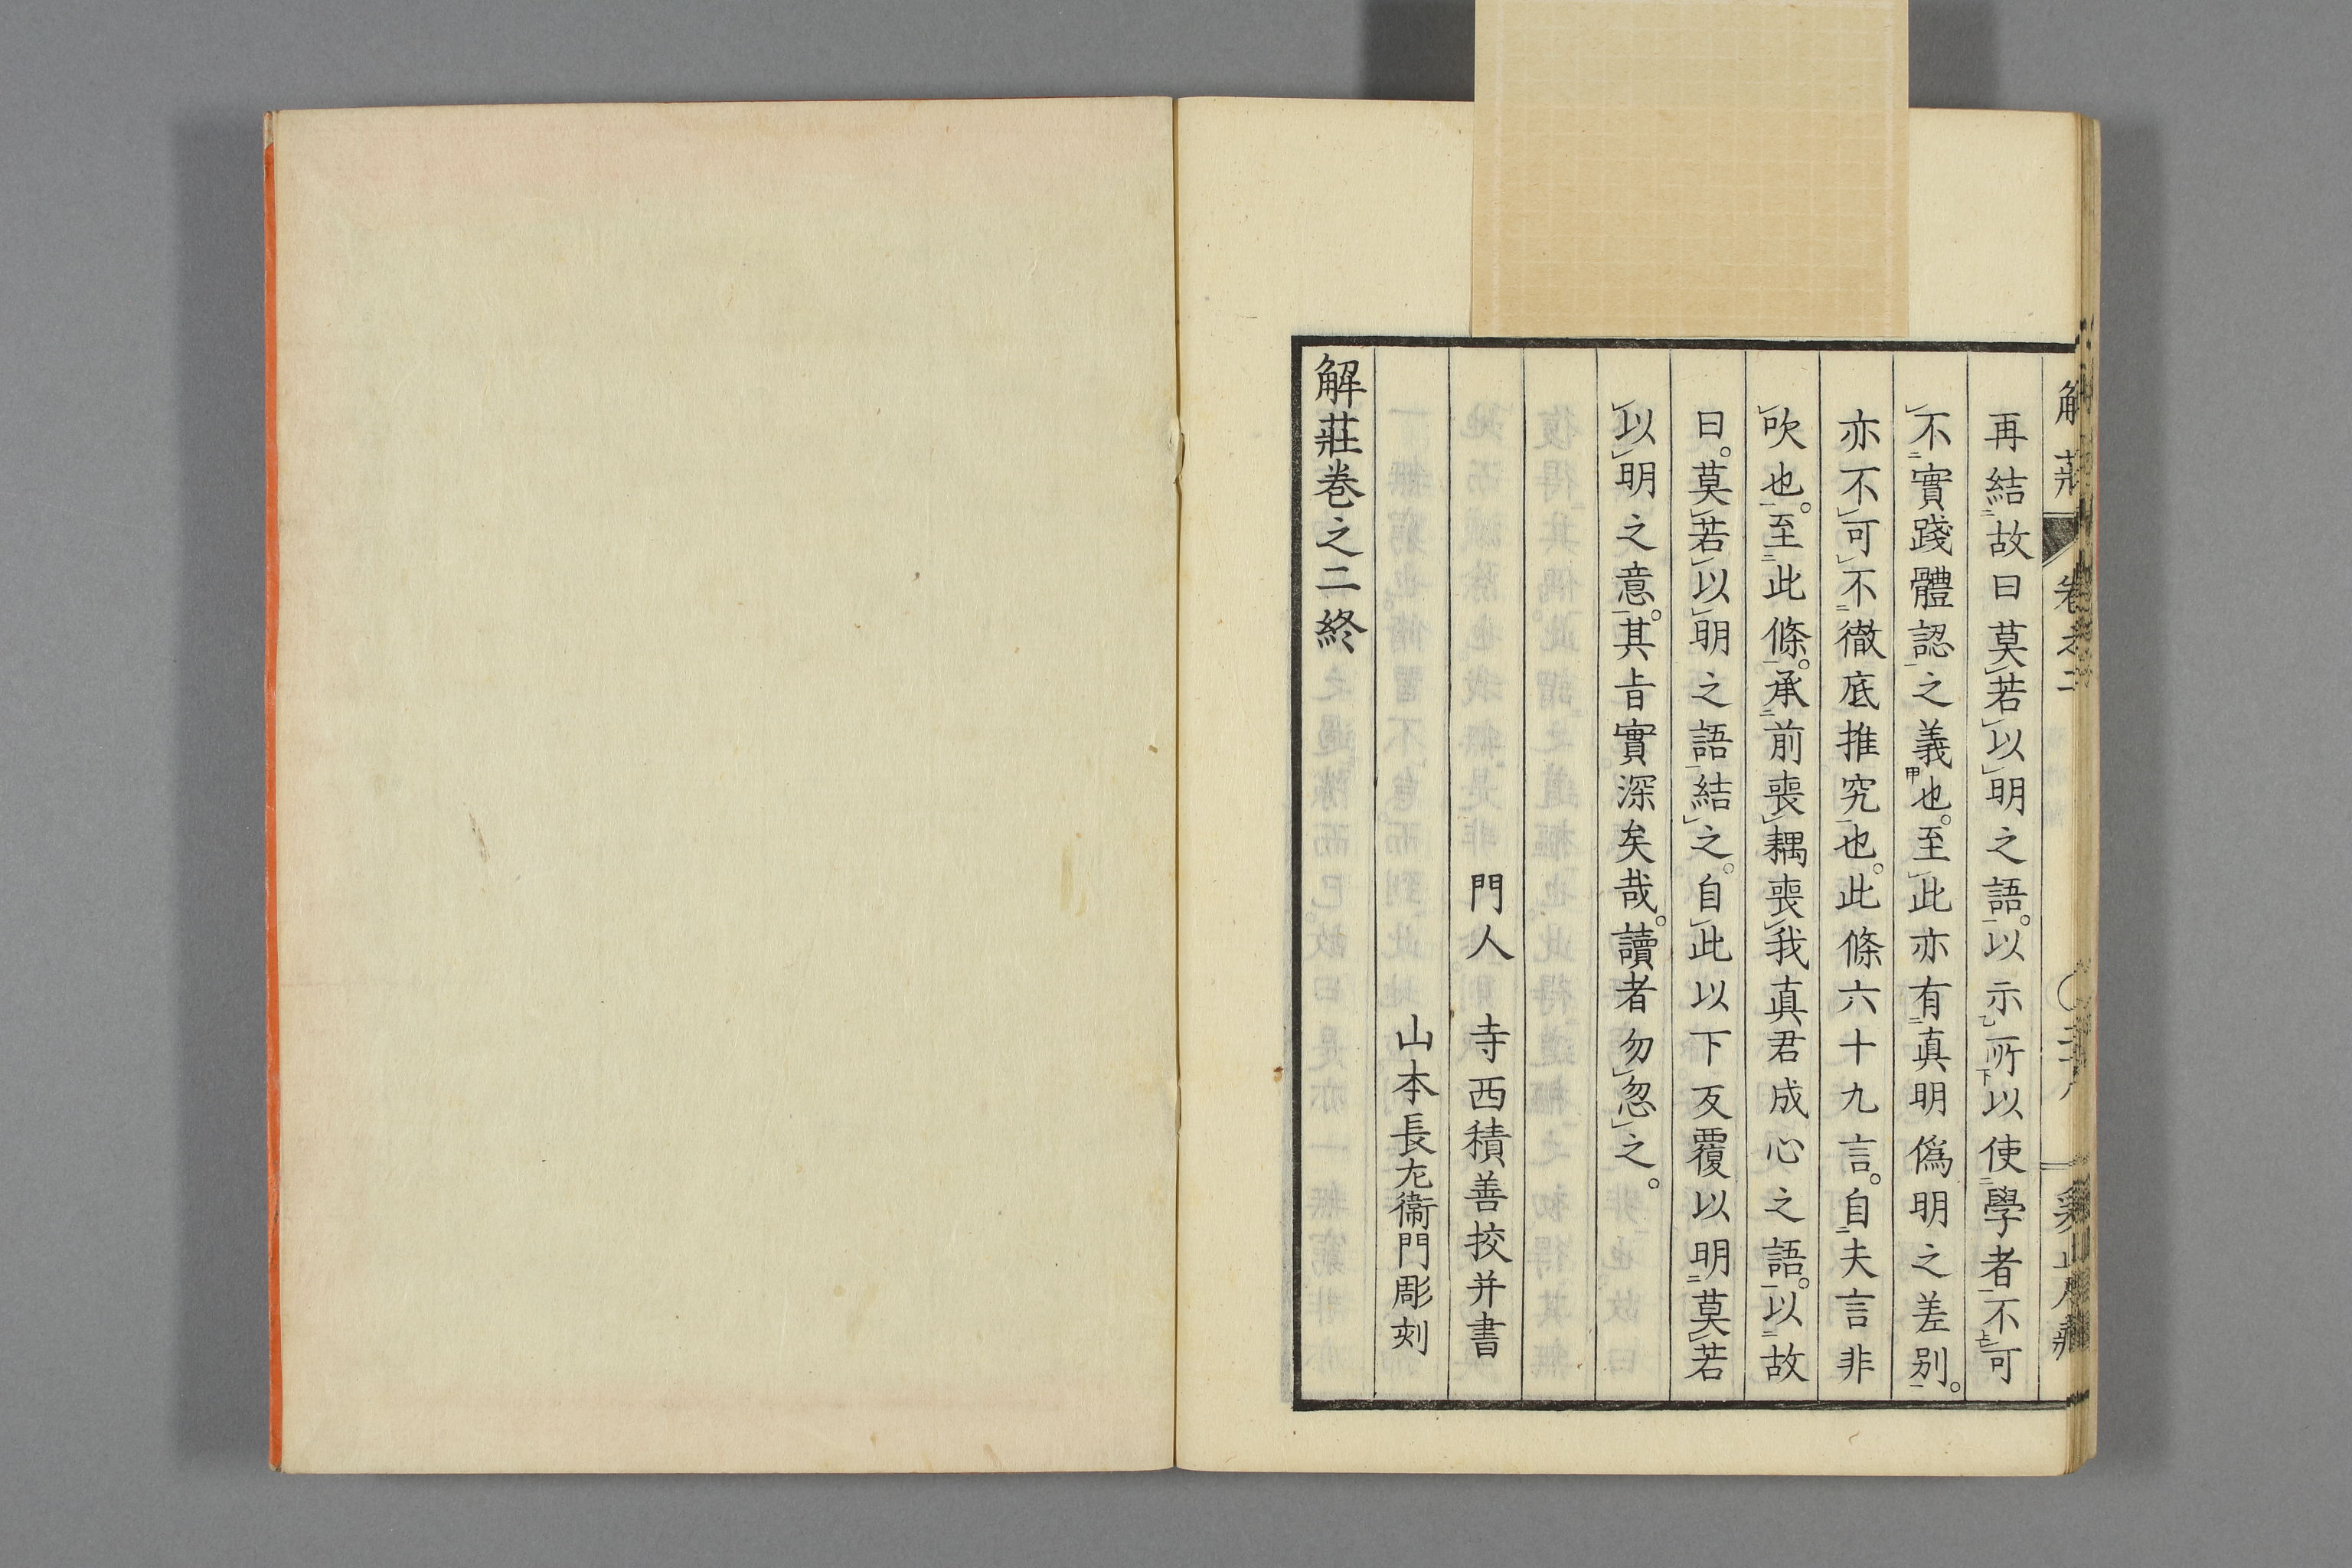 再結故曰莫若以明之語。以示所以使學者不可
不實踐體認之義也。至此亦有真明僞明之差別。
亦不可不徹底推究也。此條六十九言。自夫言非
吹也。至此條。承前喪耦喪我真君成心之語。以故
曰。莫若以明之語結之。自此以下反覆以明莫若
以明之意。其旨實深矣哉。讀者勿忽之。
門人 寺西積善挍并書
山本長左衞門彫刻
解莊卷之二終